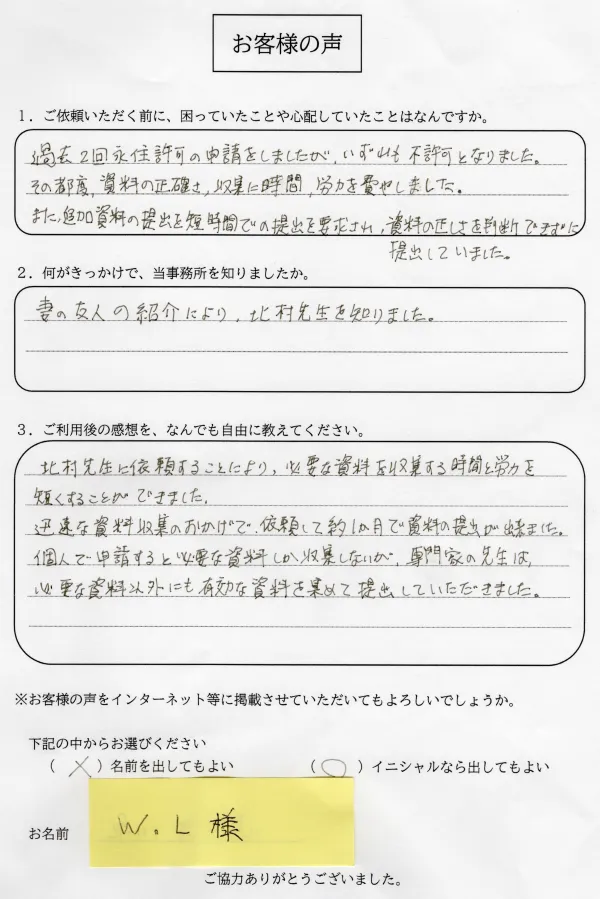 お客様の声
１．ご依頼いただく前に、困っていたことや心配していたことはなんですか。
過去2回永住許可の申請をしましたが、いずれも不許可となりました。
その都度、資料の正確さ、収集に時間、労力を費やしました。
また、追加資料の提出を短時間での提出を要求され、資料の正しさを判断できずに
提出していました。
２．何がきっかけで、当事務所を知りましたか。
妻の友人の紹介により、北村先生を知りました。
３．ご利用後の感想を、なんでも自由に教えてください。
北村先生に依頼することにより、必要な資料を収集する時間と労力を
短くすることができました。
迅速な資料収集のおかげで、依頼して約1か月で資料の提出が出来ました。
個人で申請すると必要な資料しか収集しないが、専門家の先生は、
必要な資料以外にも有効な資料を集めて提出していただきました。
※お客様の声をインターネット等に掲載させていただいてもよろしいでしょうか。
下記の中からお選びください
（ × ）名前を出してもよい （ ○ ）イニシャルなら出してもよい
お名前 W.L 様
ご協力ありがとうございました。